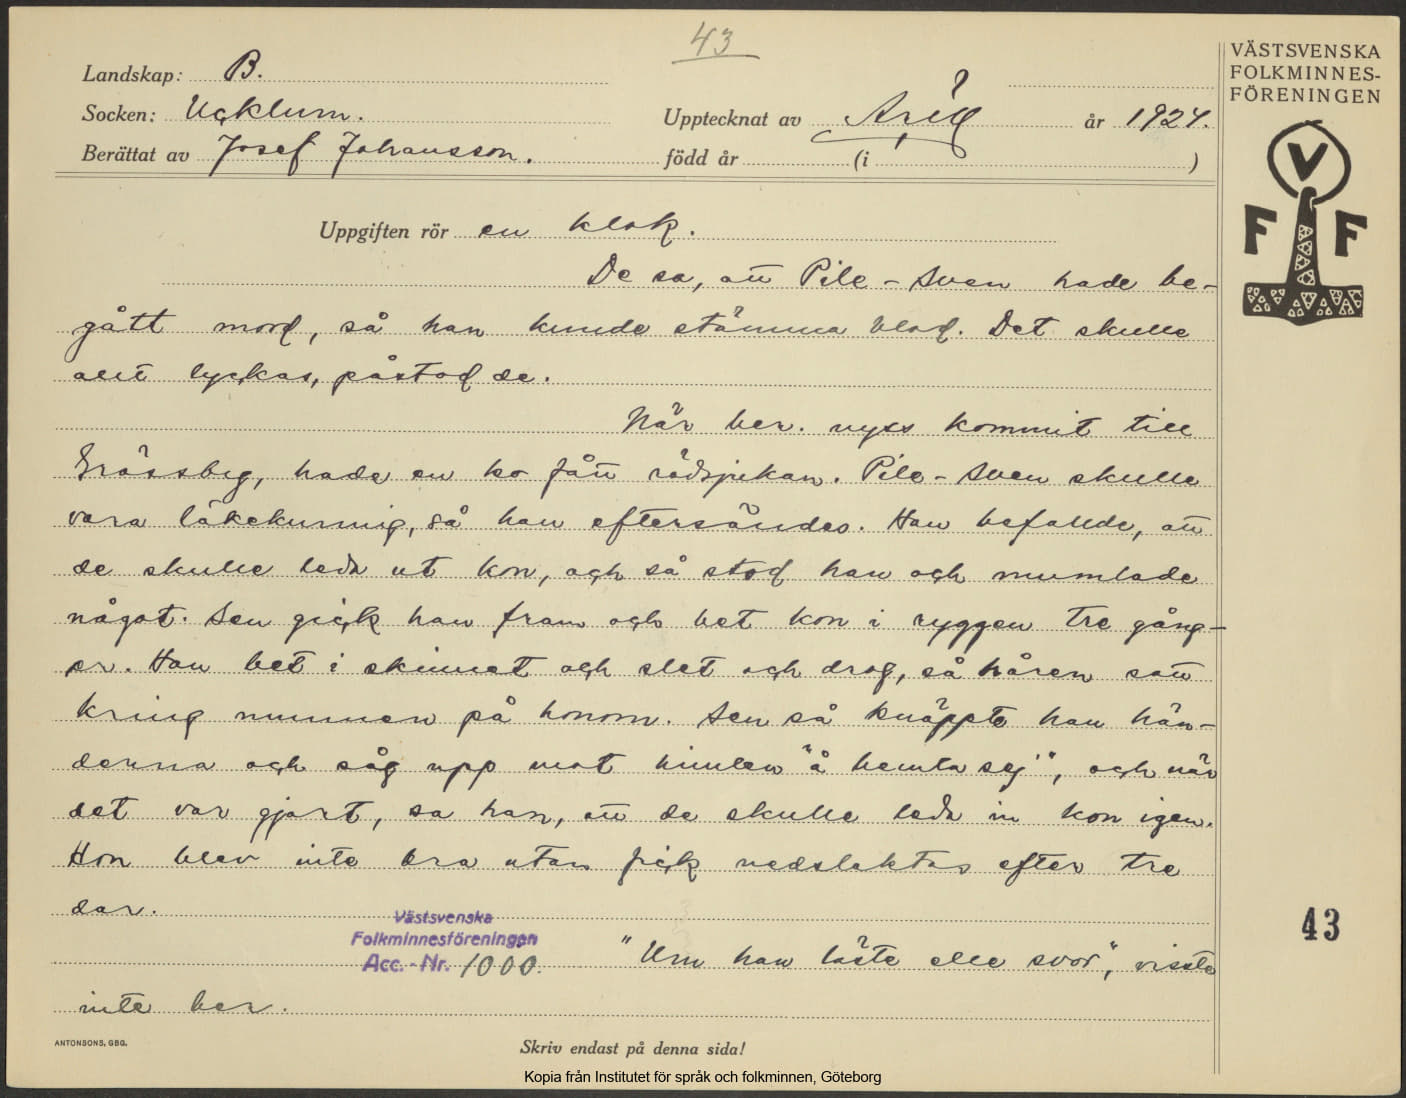 43
VÄSTSVENSKA
FOLKMINNES-
FÖRENINGEN
Landskap: B.
Socken: Ucklum.
Upptecknat av år 1924.
Berättat av Josef Johansson.
född år (i )
V
F F
Uppgiften rör en klok.
De sa, att Pile-Sven hade be-
gått mord, så han kunde stämma blod. Det skulle
allt lyckas, påstod de.
När ber. nyss kommit till
Grössbyg, hade en ko fått rödsjukan. Pile-Sven skulle
vara läkekunnig, så han eftersändes. Han befallde, att
de skulle leda ut kon, och så stod han och mumlade
något. Sen gick han fram och bet kon i ryggen tre gång-
er. Han bet i skinnet och slet och drog, så håren satt
kring munnen på honom. Sen så knäppte han hän-
derna och såg upp mot himlen "å hemla sej", och när
det var gjort, sa han, att de skulle leda in kon igen.
Hon blev inte bra utan fick nedslaktas efter tre
dar.
Västsvenska
Folkminnesföreningen
Acc.-Nr. 1000.
43
"Um han läste elle svor", visste
inte ber.
ANTONSONS, GBG.
Skriv endast på denna sida!
Kopia från Institutet för språk och folkminnen, Göteborg